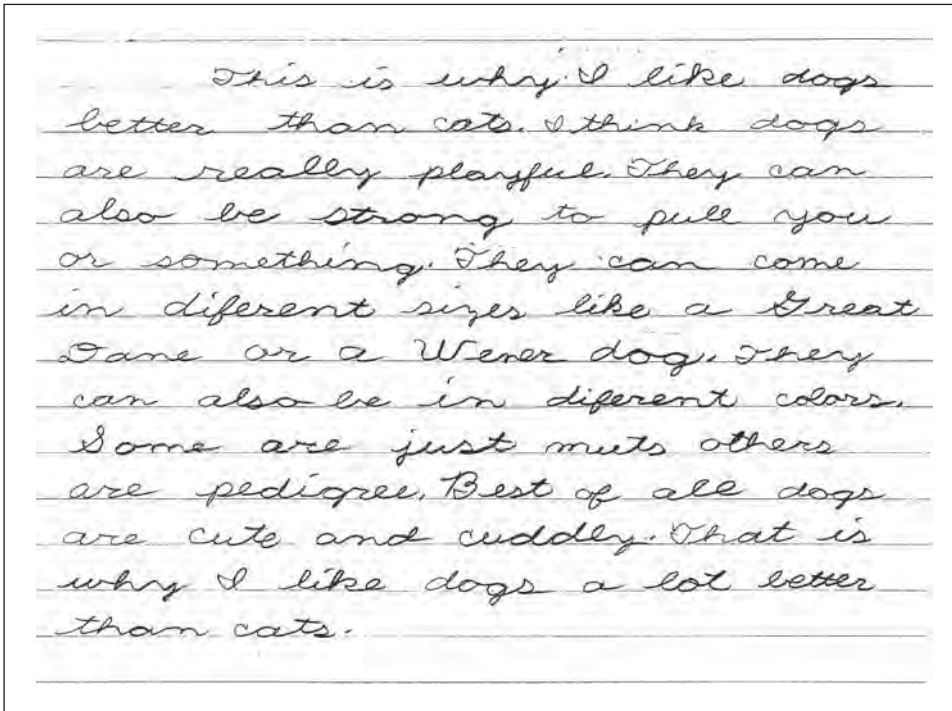 This is why I like dogs
better than cats. I think dogs
are really playful. They can
also be strong to pull you
or something. They can come
in diferent sizes like a Great
Dane or a Wener dog. They
can also be in diferent colors.
Some are just muts others
are pedigree. Best of all dogs
are cute and cuddly. That is
why I like dogs a lot better
than cats.